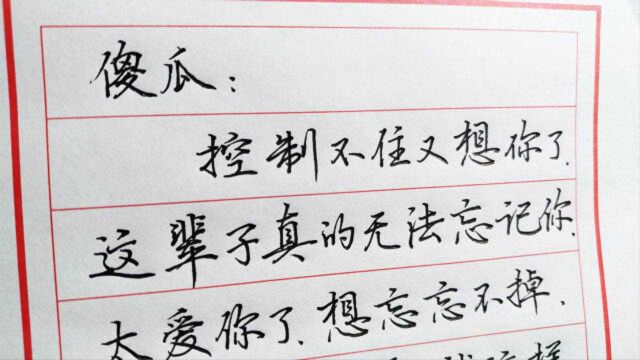 傻瓜：
控制不住又想你了.
这辈子真的无法忘记你.
太爱你了.想忘忘不掉.